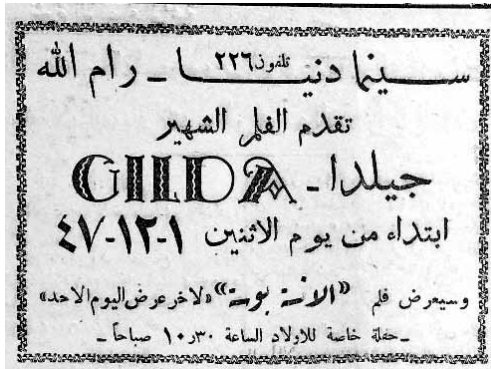 سينما دنيا تلفون ٢٢٦ - رام الله
تقدم الفلم الشهير
جيلدا - GILDA
ابتداء من يوم الاثنين ١-١٢-٤٧
وسيعرض فلم «الانسة بوسة» «لاخر عرض اليوم الاحد»
- حفلة خاصة للاولاد الساعة ١٠٫٣٠ صباحاً -